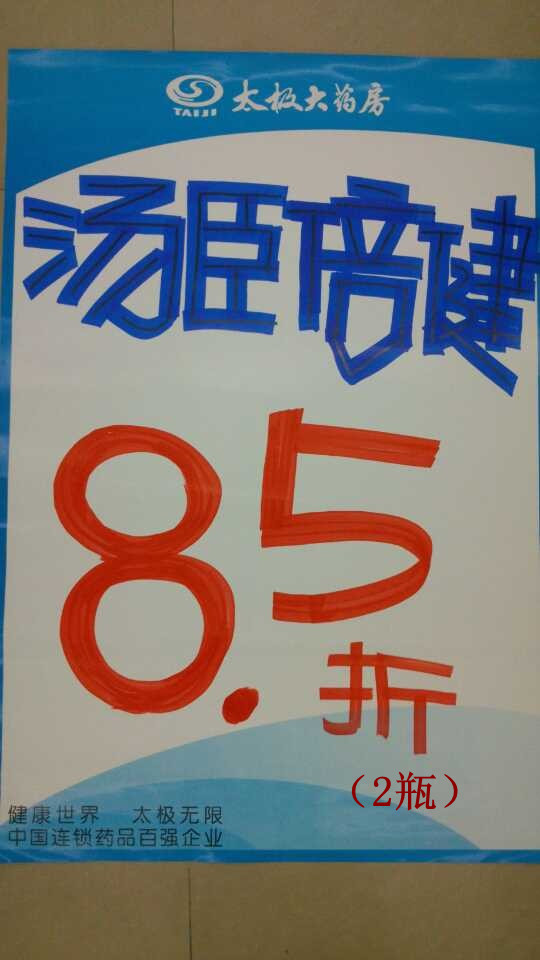 TAIJI 太极大药房
汤臣倍健
8.5折
（2瓶）
健康世界 太极无限
中国连锁药品百强企业